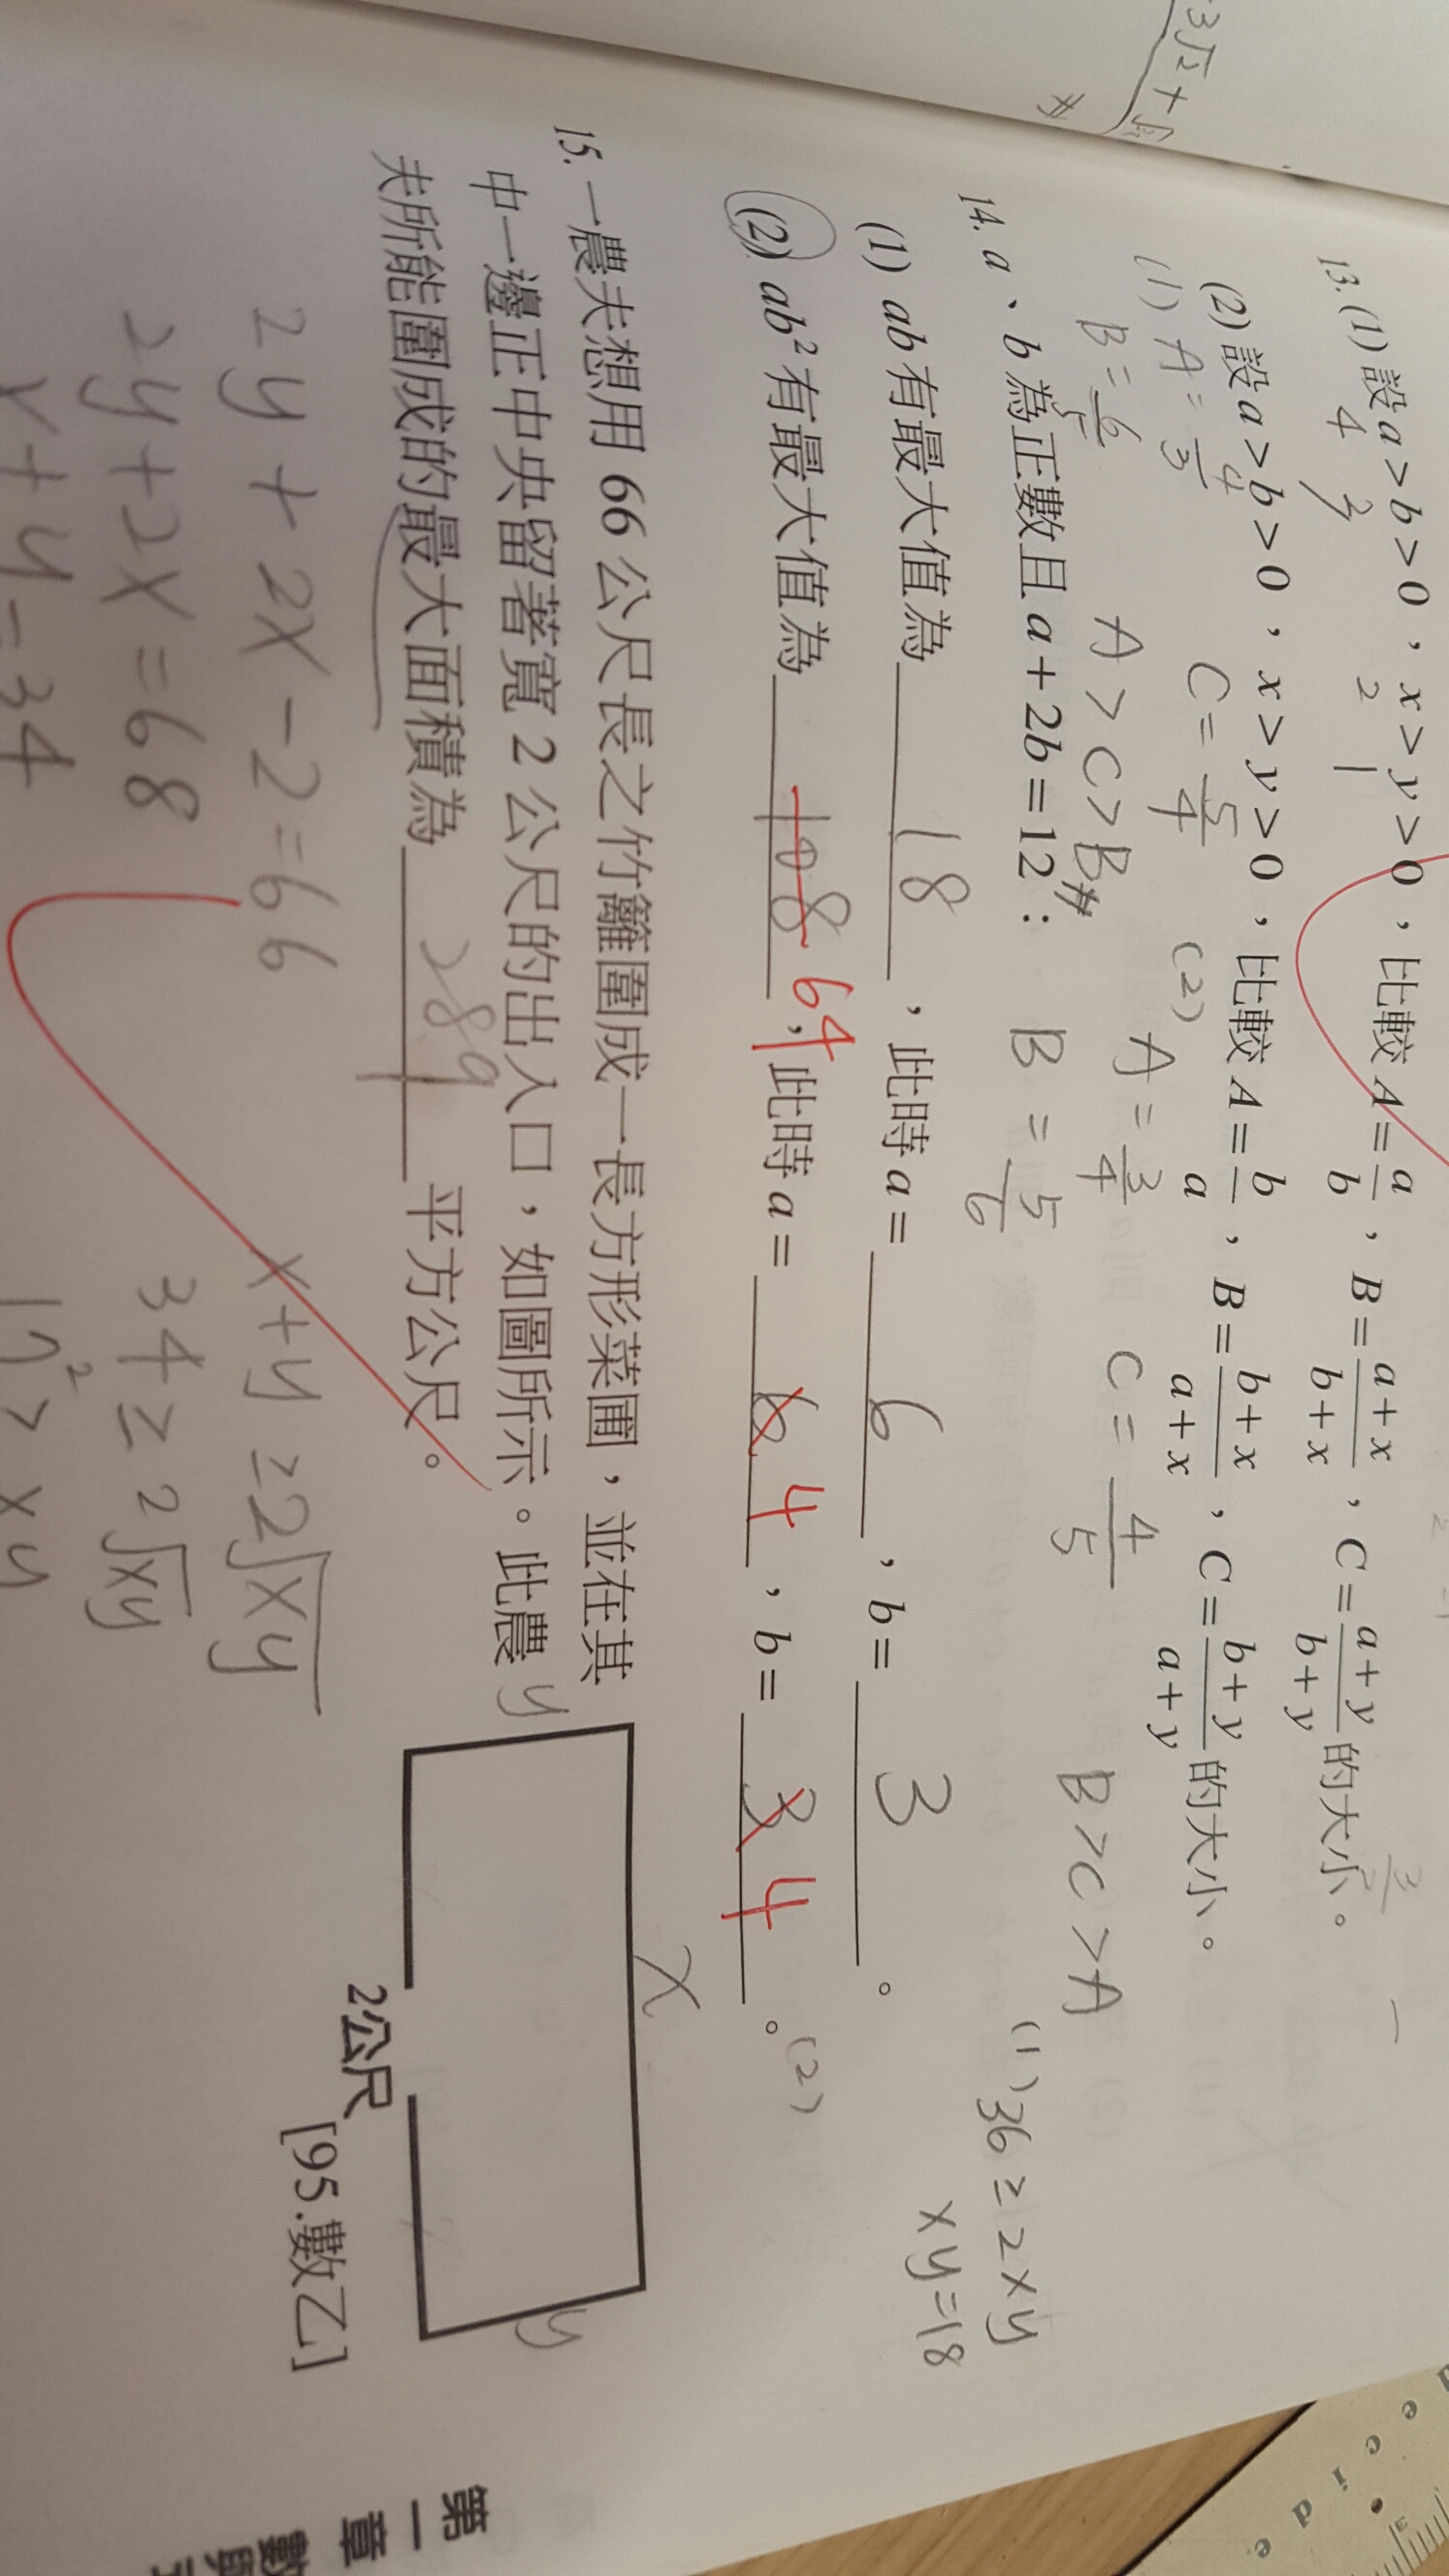 3√2+√
#
13.(1)設a>b>0，x>y>0，比較A=a/b，B=(a+x)/(b+x)，C=(a+y)/(b+y)的大小。
4 3 2 1
3/2
(2)設a>b>0，x>y>0，比較A=b/a，B=(b+x)/(a+x)，C=(b+y)/(a+y)的大小。
(1) A=4/3 C=5/4 (2) A=3/4 C=4/5 B>C>A
B=6/5 A>C>B# B=5/6
14. a、b為正數且a+2b=12：
(1)36≥2xy
xy=18
(1) ab有最大值為 18 ，此時a= 6 ，b= 3 。
(2) ab²有最大值為 108 64 ，此時a= 6 4 ，b= 3 4 。
(2)
15. 一農夫想用66公尺長之竹籬圍成一長方形菜圃，並在其
中一邊正中央留著寬2公尺的出入口，如圖所示。此農
夫所能圍成的最大面積為 289 平方公尺。
x
y
y
2公尺
[95.數乙]
2y+2x-2=66
2y+2x=68
x+y=34
x+y≥2√xy
34≥2√xy
17²≥xy
第一章
decide